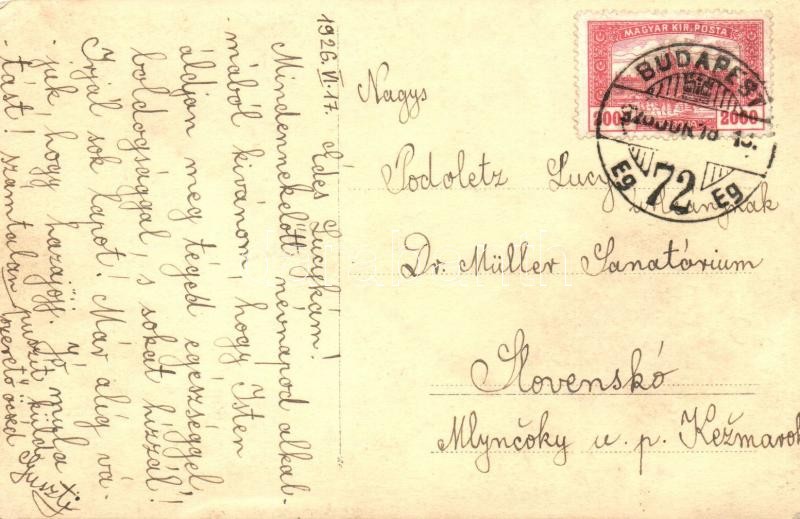 1926.VI.17.
Édes Lucykám!
Mindennekelőtt névnapod alkal-
mából kívánom, hogy Isten
áldjon meg téged egészséggel,
boldogsággal, s sokat hízzál!
Írjál sok lapot! Már alig vá-
juk, hogy hazajöjj. Jó mula
tást! számtalan puszit küld
szerető öcséd Guszti
MAGYAR KIR. POSTA
2000 2000
BUDAPEST
72
Eg Eg
Nagys
Podoletz Lucy
úrleánynak
Dr. Müller Sanatórium
Slovenskó
Mlynčoky u. p. Kežmarok